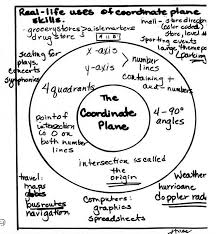 Real-life uses of coordinate plane
skills.
- grocery stores: aisle markers
- drug stores
mall - store directory
(color coded)
store, level #
Sporting events
large theme pks
(parking)
seating for
plays,
concerts
symphonies
x-axis
y-axis
number
lines
containing +
and - numbers
4 quadrants
The
Coordinate
Plane
4 - 90°
angles
Point of
intersection
is 0 on
both number
lines
intersection is called
the
origin
travel:
maps
globes
bus routes
navigation
Computers:
graphics
spreadsheets
Weather
hurricane
doppler radar